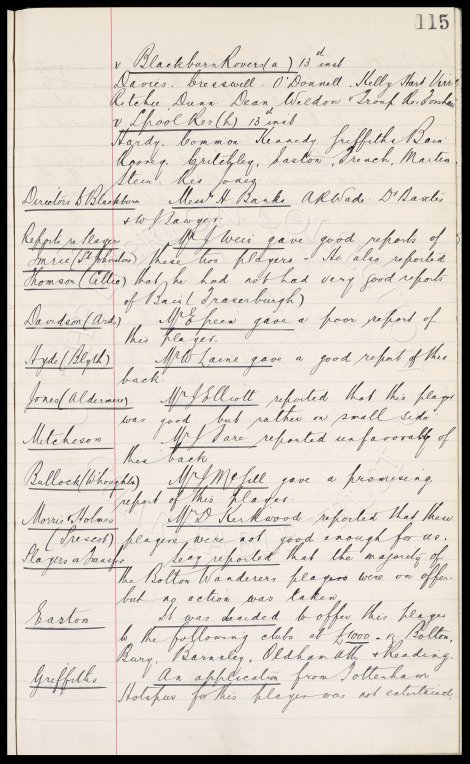 115
v Blackburn Rovers (a) 13th inst
Davies. Cresswell. O'Donnell. Kelly Hart Virr
Ritchie Dunn. Dean Weldon Troup Res
v L'pool Res (h) 13th inst
Hardy. Common Kennedy Griffiths Bain
Rooney. Critchley. Easton. French, Martin.
Stein. Res Jones
Directors to Blackburn Messrs H Banks A R Wade. Dr Baxter
& W J Sawyer.
Reports re Players Mr J Weir gave good reports of
Imrie (St Johnstone) these two players - He also reported
Thomson (Alloa) that he had not had very good reports
of Bain (Fraserburgh)
Davidson (Ards) Mr E Green gave a poor report of
this player.
Hyde (Blyth) Mr W Laine gave a good report of this
back.
Jones (Aldermere) Mr J Elliott reported that this player
was good but rather on small side.
Mitcheson Mr J are reported unfavorably of
this back
Bullock (W'houghton) Mr J McGill gave a promising
report of this player.
Morris & Holmes Mr D Kirkwood reported that these
(Prescot) players were not good enough for us.
Players re Transfer Secy reported that the majority of
the Bolton Wanderers players were on offer
but no action was taken
Easton It was decided to offer this player
to the following clubs at £1000 - v Bolton,
Bury, Barnsley, Oldham Ath & Reading.
Griffiths An application from Tottenham
Hotspur for this player was not entertained.